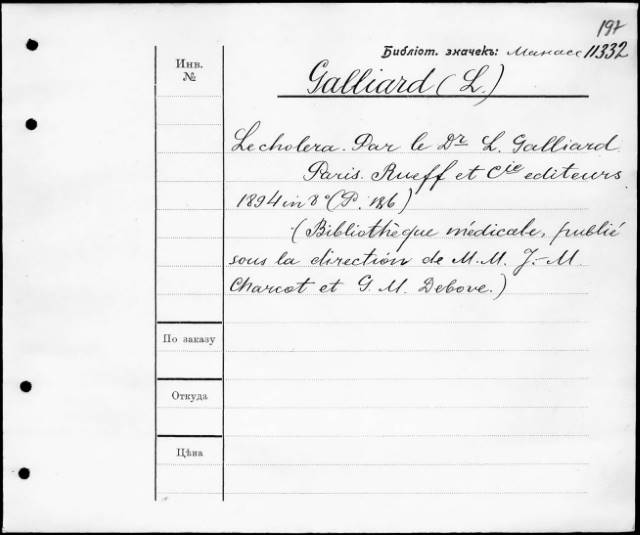 197
Библіот. значекъ: Манасс 11332
Инв.
№
Galliard (L.)
Le cholera. Par le Dr L. Galliard
Paris. Rueff et Cie editeurs
1894 in 8° (P. 186)
(Bibliothèque médicale, publié
sous la direction de M.M. J.-M.
Charcot et G. M. Debove.)
По заказу
Откуда
Цѣна